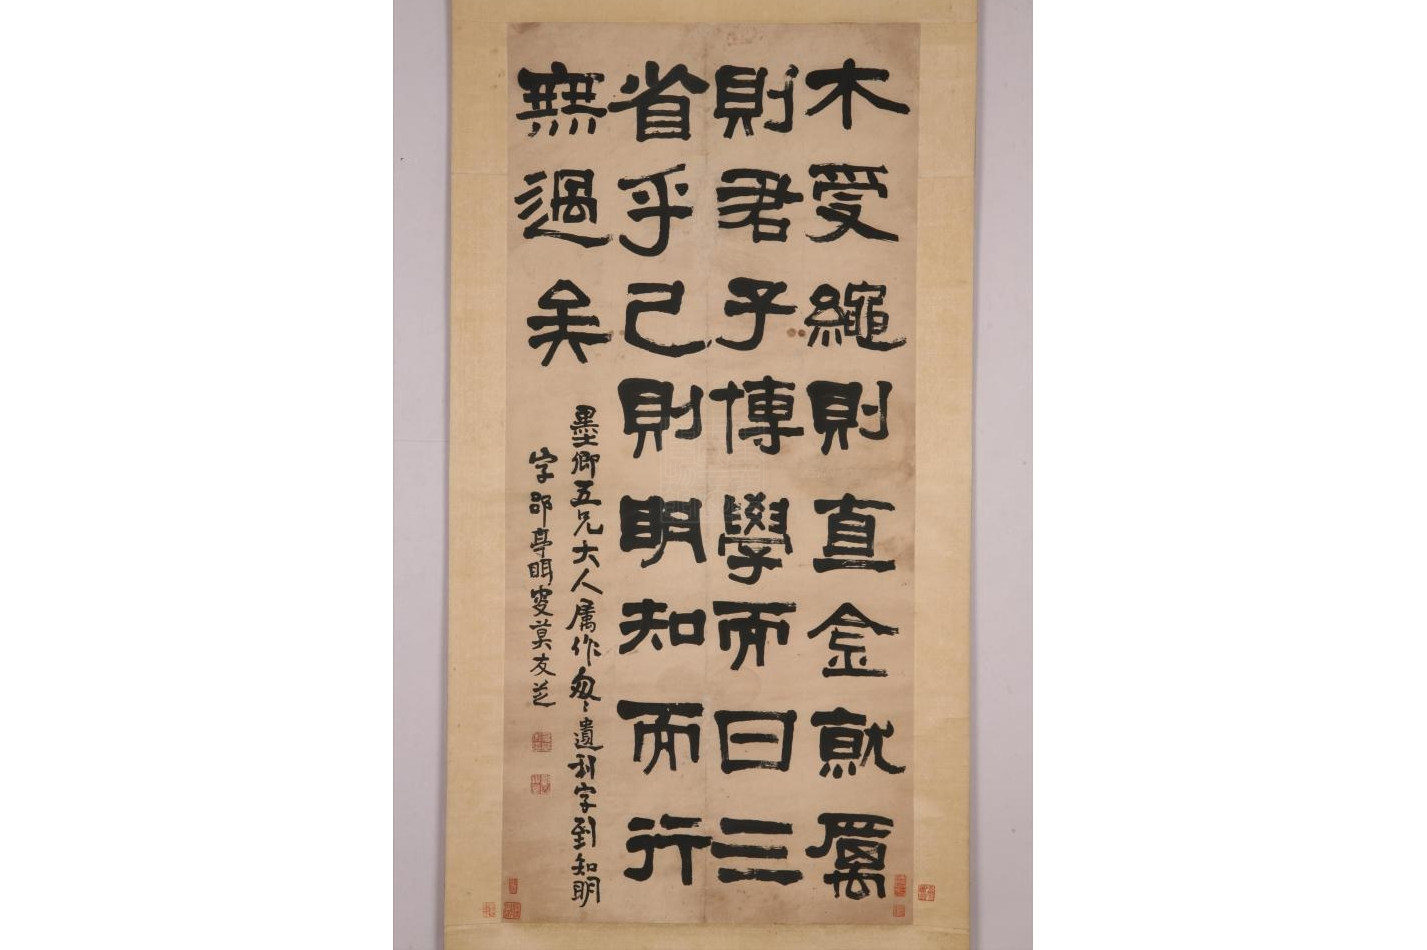 木受繩則直金就厲
則君子博學而日三
省乎己則明知而行
無過矣
墨卿五兄大人属作匆々遺利字到知明
字郘亭眲叟莫友芝